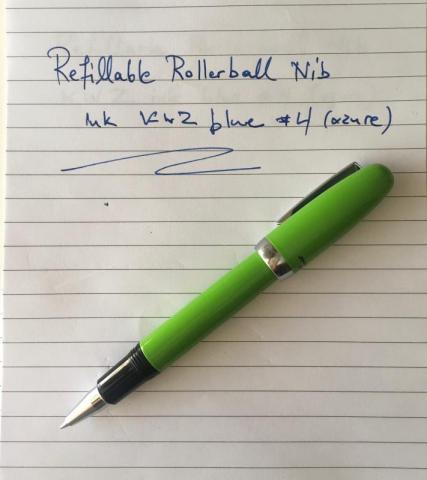 Refillable Rollerball Nib
ink KWZ blue #4 (azure)